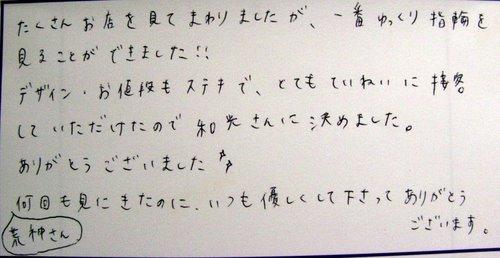 たくさんお店を見てまわりましたが、一番ゆっくり指輪を
見ることができました!!
デザイン・お値段もステキで、とてもていねいに接客
していただけたので和光さんに決めました。
ありがとうございました
何回も見にきたのに、いつも優しくして下さってありがとう
ございます。
荒神さん